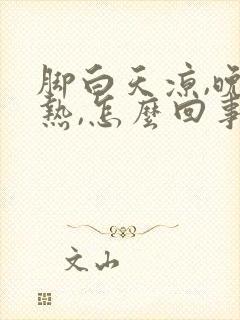 脚白天凉,晚
热,怎麼回事
文山